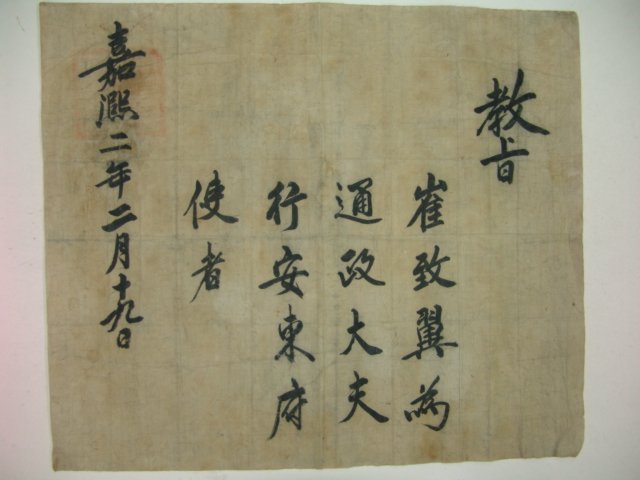 教旨
崔致翼為
通政大夫
行安東府
使者
嘉熙二年二月十九日